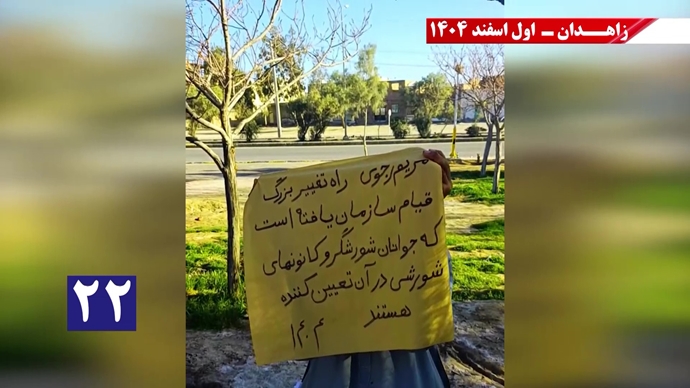 زاهدان – اول اسفند ۱۴۰۴
مریم رجوی راه تغییر بزرگ
قیام سازمان یافته است
که جوانان شورشگر و کانونهای
شورشی در آن تعیین کننده
هستند م ۱۰۲
۲۲